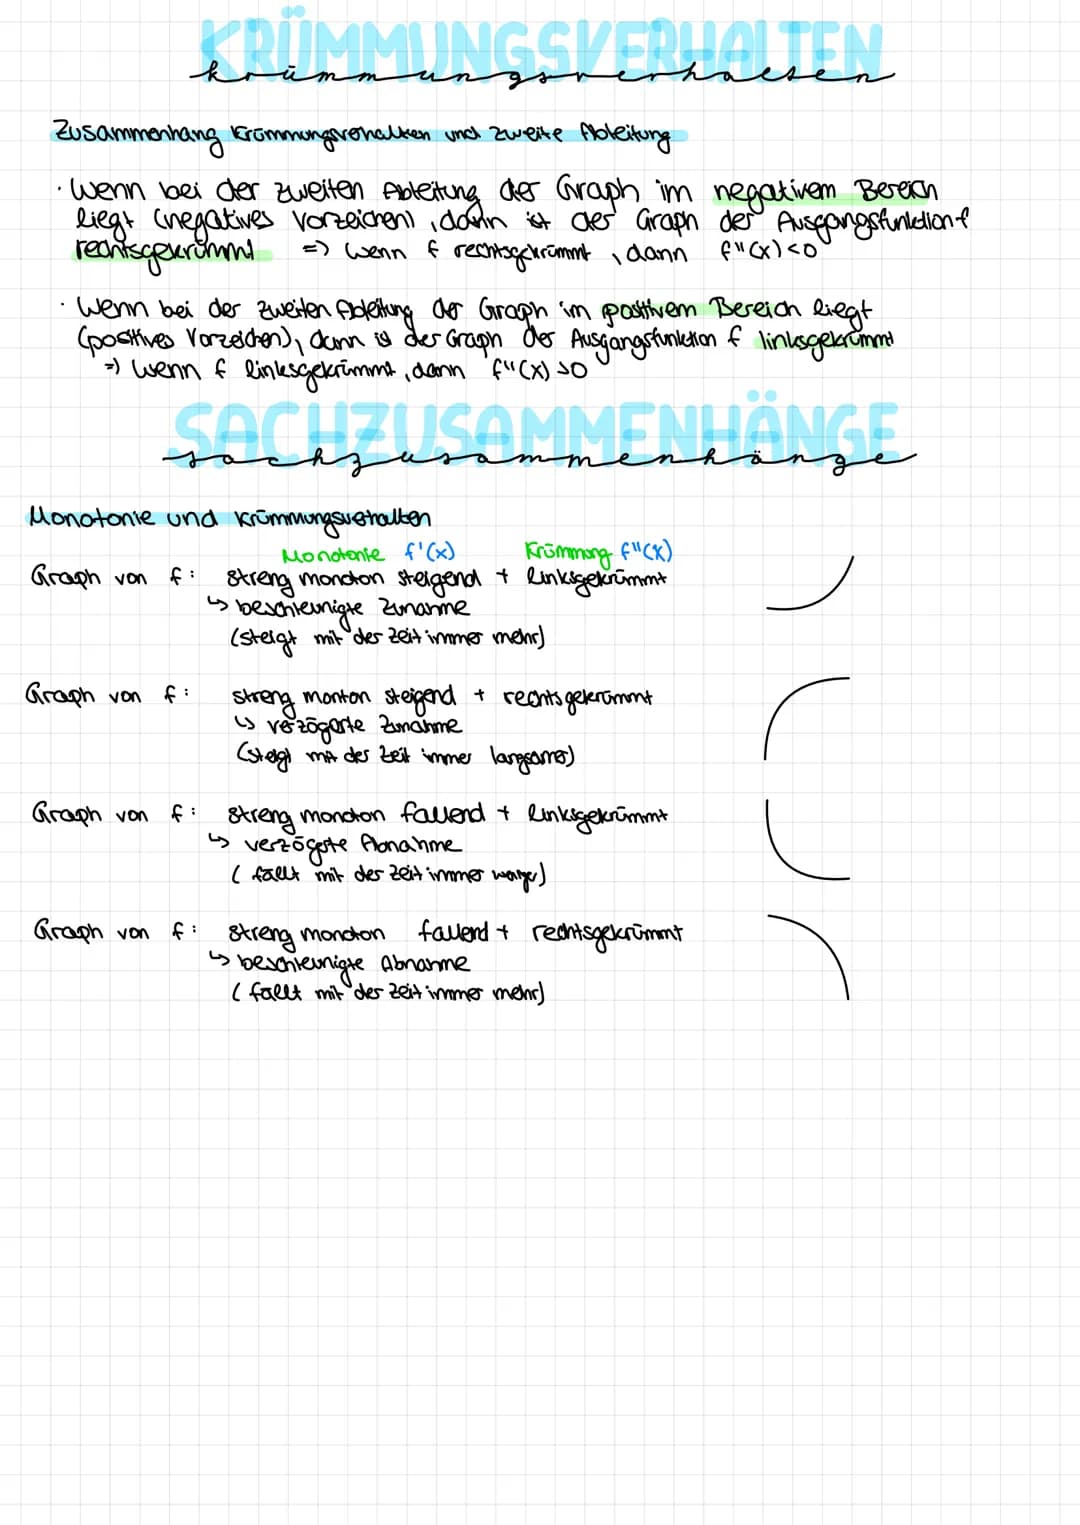 KRÜMMUNGSVERHALTEN
krümmungsverhalten
Zusammenhang Krümmungsverhalten und zweite Ableitung
· Wenn bei der zweiten Ableitung der Graph im negativem Bereich
liegt (negatives Vorzeichen), dann ist der Graph der Ausgangsfunktion f
rechtsgekrümmt => Wenn f rechtsgekrümmt, dann f''(x)<0
· Wenn bei der zweiten Ableitung der Graph im positivem Bereich liegt
(positives Vorzeichen), dann ist der Graph der Ausgangsfunktion f linksgekrümmt
=> Wenn f linksgekrümmt, dann f''(x) >0
SACHZUSAMMENHÄNGE
sachzusammenhänge
Monotonie und Krümmungsverhalten
Monotonie f'(x) Krümmung f''(x)
Graph von f: streng monoton steigend + linksgekrümmt
↳ beschleunigte Zunahme
(steigt mit der Zeit immer mehr)
Graph von f: streng monton steigend + rechtsgekrümmt
↳ verzögerte Zunahme
(steigt mit der Zeit immer langsamer)
Graph von f: streng monoton fallend + linksgekrümmt
↳ verzögerte Abnahme
(fällt mit der Zeit immer weniger)
Graph von f: streng monoton fallend + rechtsgekrümmt
↳ beschleunigte Abnahme
(fällt mit der Zeit immer mehr)